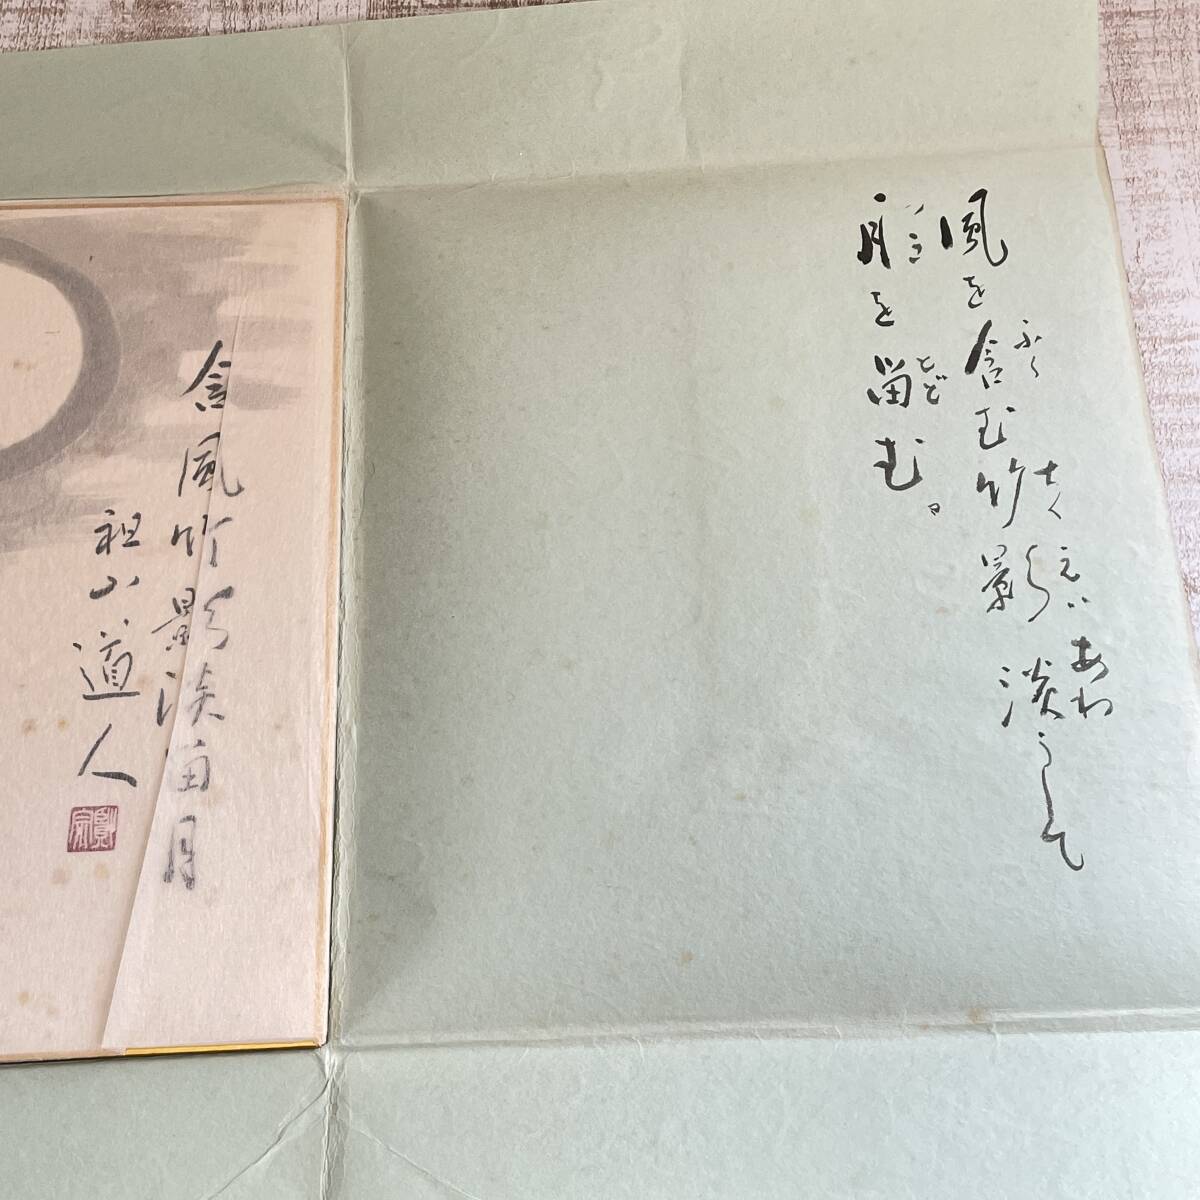 ふく ちく えい あわ
風を含む竹影淡うして
つき とど
月を畄む。
含風竹影淡畄月
祖山道人